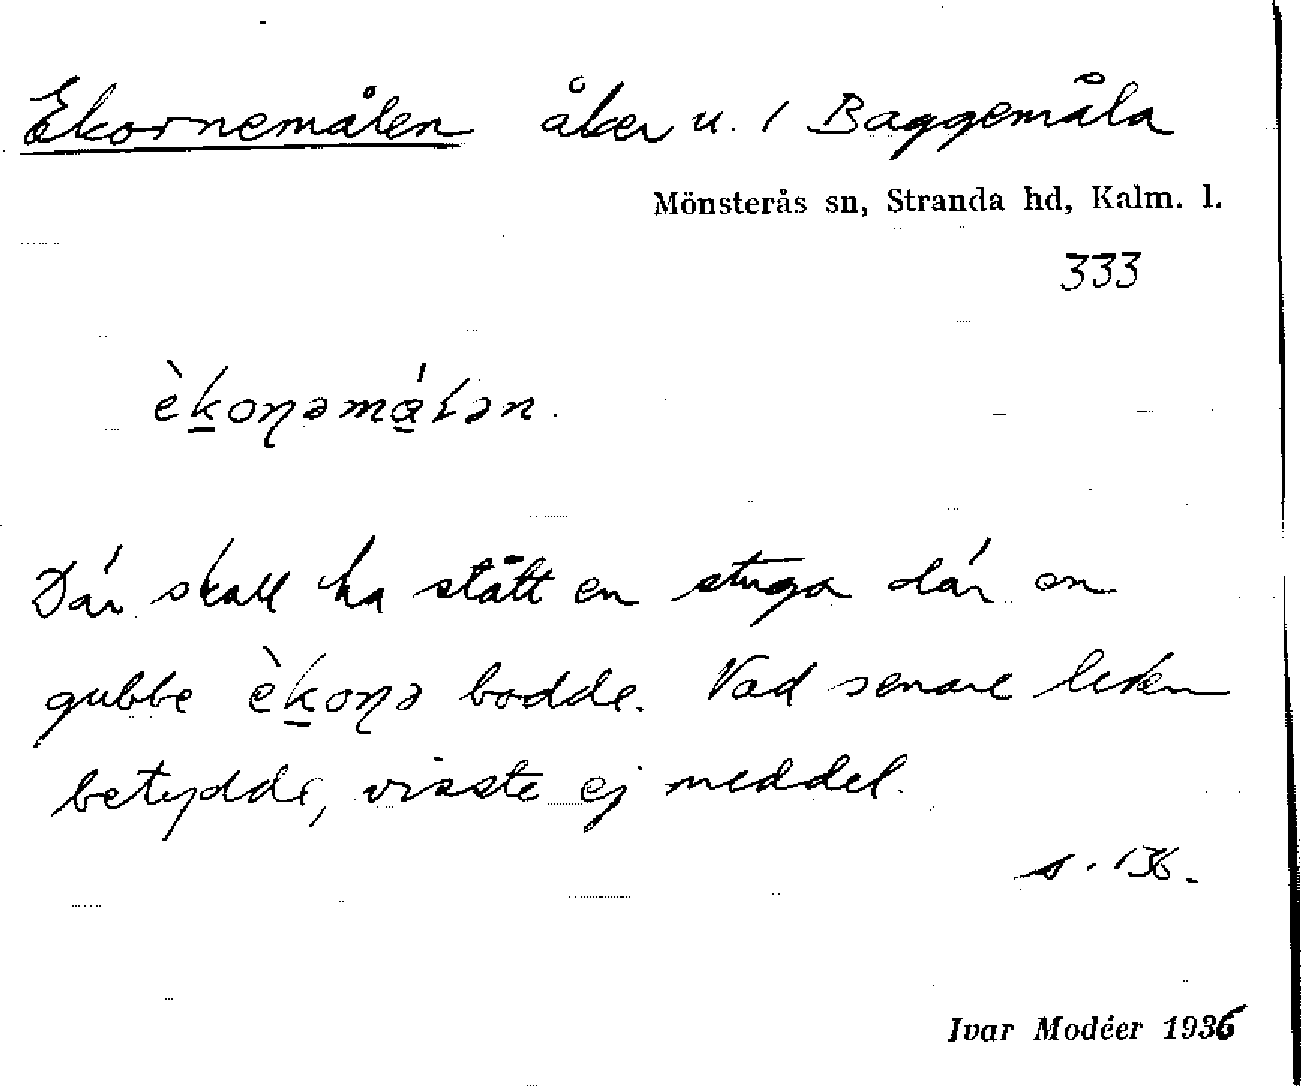 Ekornemålen åker u. / Baggemåla
Mönsterås sn, Stranda hd, Kalm. l.
333
èk̲oꞃəmá̲lən.
Där skall ha stått en stuga där en
gubbe èk̲oꞃə bodde. Vad senare leden
betydde, visste ej meddel.
s. 136.
Ivar Modéer 1936